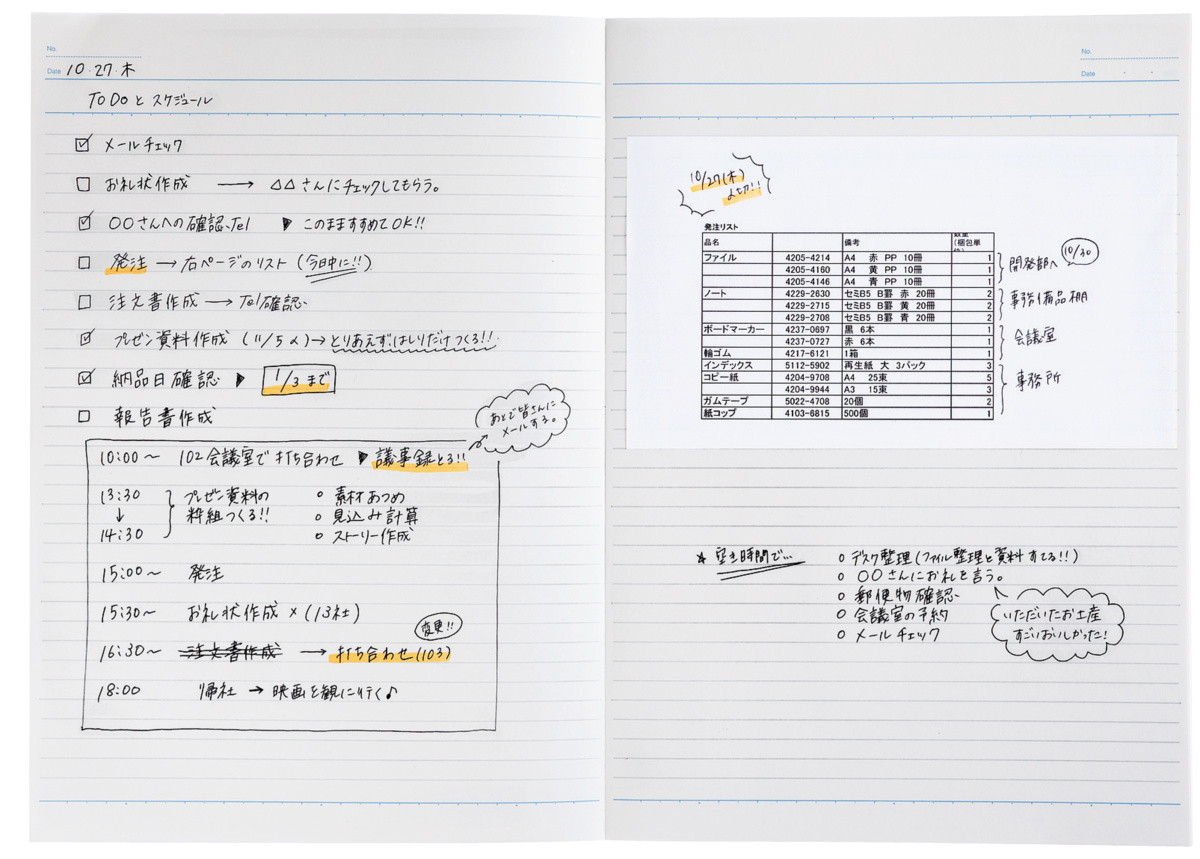 No.
Date 10・27・木
ToDoとスケジュール
☑ メールチェック
□ お礼状作成 → △△さんにチェックしてもらう。
☑ ○○さんへの確認、Tel ▶ このまますすめてOK!!
□ 発注 → 右ページのリスト(今日中に!!)
□ 注文書作成 → Tel確認、
☑ プレゼン資料作成 (11/5 〆) → とりあえずはしりだけつくる!!
☑ 納品日確認 ▶ 1/3まで
□ 報告書作成
あとで皆さんに
メールする。
10:00〜 102会議室で打ち合わせ ▶ 議事録とる!!
13:30 プレゼン資料の ○ 素材あつめ
↓ 粋組つくる!! ○ 見込み計算
14:30 ○ ストーリー作成
15:00〜 発注
15:30〜 お礼状作成×(13社)
変更!!
16:30〜 注文書作成 → 打ち合わせ(103)
18:00 帰社 → 映画を観に行く♪
No.
Date ・ ・
10/27(木)
〆切!!
発注リスト
品名 備考 数量(梱包単位)
ファイル 4205-4214 A4 赤 PP 10冊 1
4205-4160 A4 黄 PP 10冊 1
4205-4146 A4 青 PP 10冊 1
開発部へ 10/30
ノート 4229-2630 セミB5 B罫 赤 20冊 2
4229-2715 セミB5 B罫 黄 20冊 2
4229-2708 セミB5 B罫 青 20冊 2
事務備品棚
ボードマーカー 4237-0697 黒 6本 1
4237-0727 赤 6本 1
輪ゴム 4217-6121 1箱 1
会議室
インデックス 5112-5902 再生紙 大 3パック 3
コピー紙 4204-9708 A4 25束 5
4204-9944 A3 15束 3
ガムテープ 5022-4708 20個 2
紙コップ 4103-6815 500個 1
事務所
★ 空き時間で… ○ デスク整理(ファイル整理と資料すてる!!)
○ ○○さんにお礼を言う。
○ 郵便物確認、
○ 会議室の予約
○ メールチェック
いただいたお土産
すごいおいしかった!